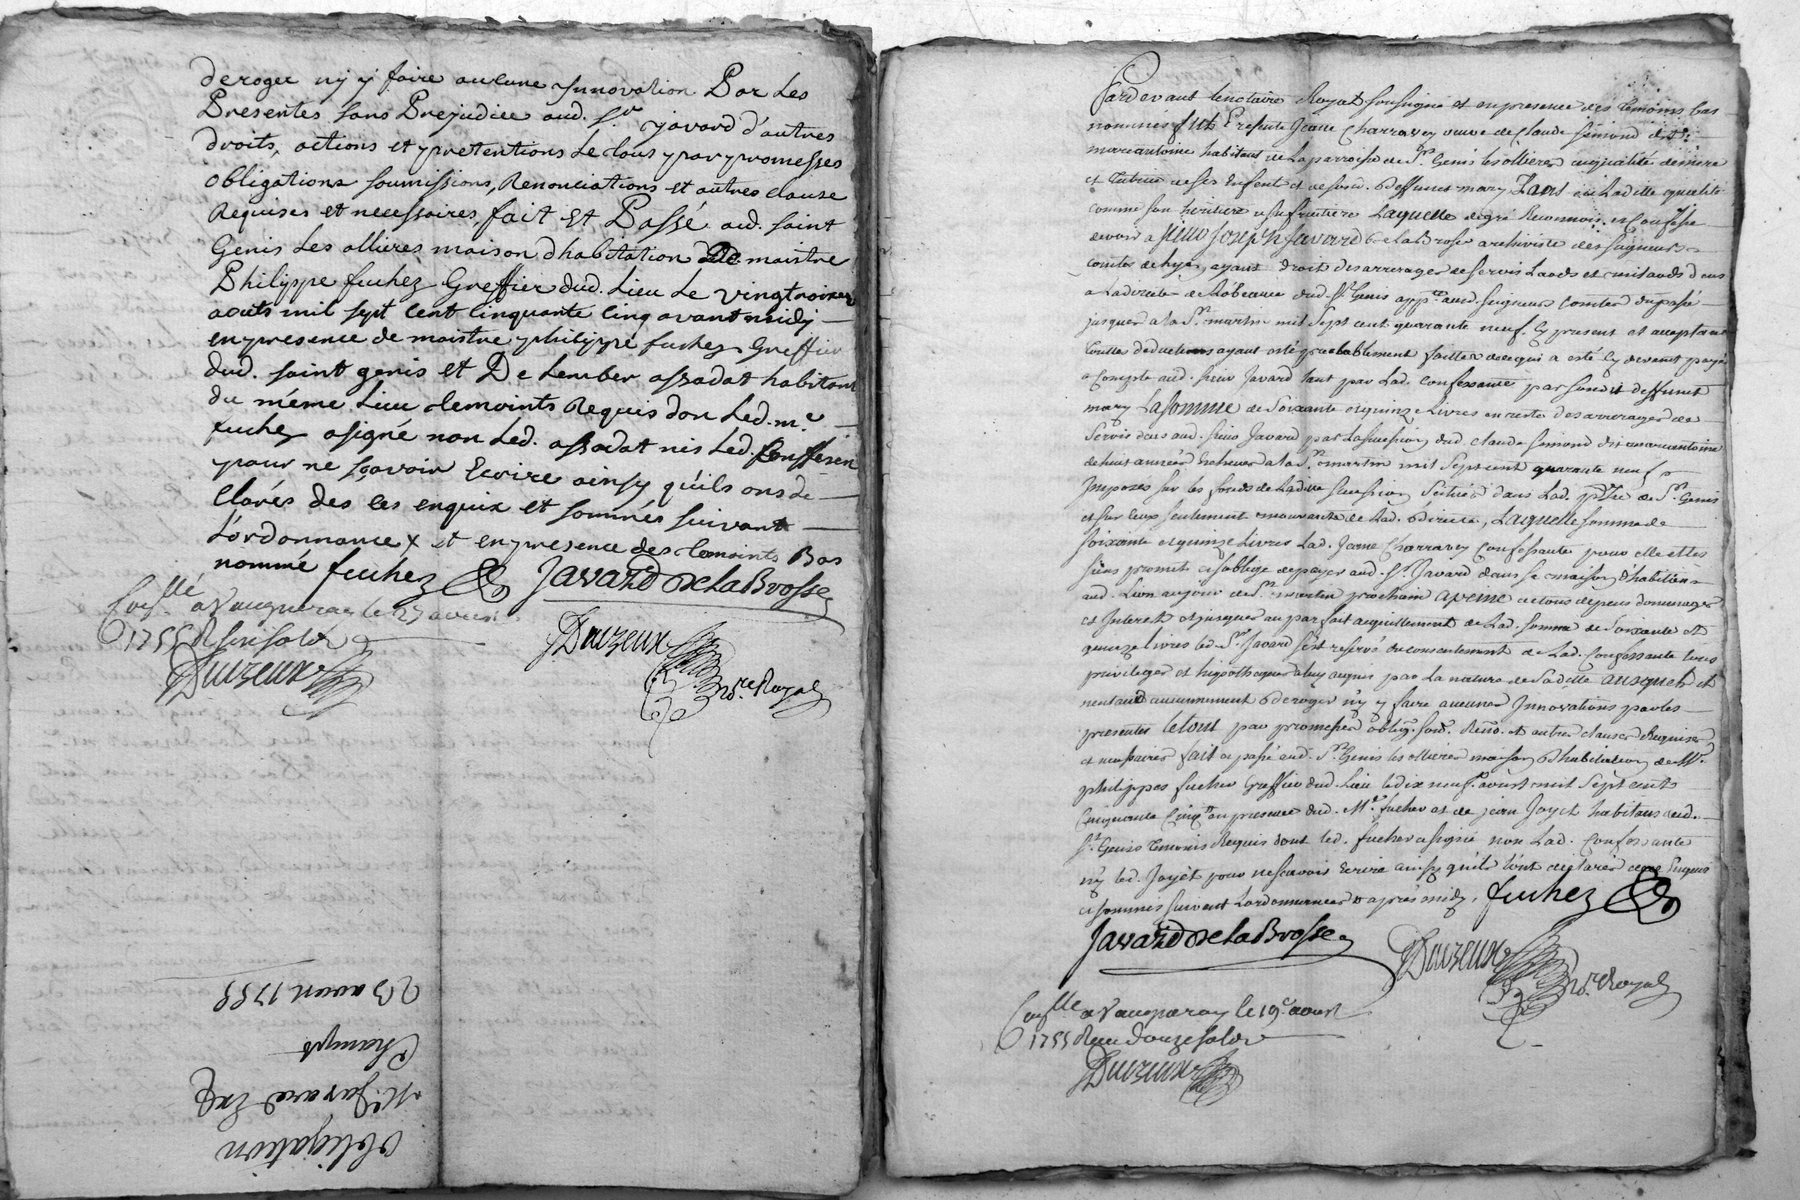 deroger ny y faire aucune Innovation Par Les
Presentes sans Prejudice aud. Sr. Javard d'autres
droits, actions et pretentions Le tous par promesses
obligations soumissions, Renonciations et autres clause
Requises et necessaires, fait Et Passé aud. saint
Genis Les ollieres maison d'habitation De maistre
Philippe fuchez Greffier dud. Lieu Le vingttroisie
aouts mil sept Cent Cinquante Cinq avant midy
en presence de maistre philippe fuchez Greffier
dud. saint genis et De Lember assadat habitant
du méme Lieu temoints Requis don Led. me.
fuchez a signé non Led. assadat nis Led. Confessen
pour ne sçavoir Ecrire ainsy qu'ils ons de
Clarés des ces enquix et sommés suivant
L'ordonnance x et en presence des temoints Bas
nommé fuchez Javard De La Brosse
Conllé a Vaugneray le 27 avril
1755 R
Duvzeux
Duvzeux
No.re Royal
23 1755
Champt
Mr. Javard
obligation
Pardevant le notaire Royal soussigné et en presence des temoins bas
nommes fut Presente Jeane Charravey veuve de Claude simond dit
marcantoine habitant de La parroisse de St. Genis les ollieres en qualité de mere
et tutrice de ses Enfent et de feu d. deffunct mary Tant en Laditte qualité
comme son heritiere usufruitiere Laquelle de gré Reconnois et Confesse
devoir a sieur Joseph Javard De La Brosse archiviste des seigneurs
comtes de Lyon, ayant droit des arrerages de servis Laods et milaods deus
a La directe de L'obeance dud. St. Genis appte. aud. seigneurs comtes du passé
jusques a la St. martin mil sept cent quarante neuf. Cy present et acceptant
toutte deductions ayant esté prealablement faittes de ce qui a esté Cy devant payé
a Compte aud. sieur Javard tant par Lad. confessante par son d. deffunct
mary La somme de soixante et quinze Livres en reste des arrerages de
servis deus aud. sieur Javard par La sucession dud. claude simond dit marcantoine
de huit années Echeues a la St. martin mil sept cent quarante neuf
Imposés sur les fonds de Laditte sucession scitués dans Lad. psse. de St. Genis
et sur ceux seulement mouvants de Lad. directe, Laquelle somme de
soixante et quinze Livres Lad. Jeane Charravey Confessante pour elle et les
siens promet et s'oblige de payer aud. Sr. Javard dans sa maison d'habitation
aud. Lion au jour de St. martin prochain a peine de tous depens dommages
et Interets et jusques au parfait acquittement de Lad. somme de soixante et
quinze livres led. Sr. Javard s'est reservé du consentement de Lad. Confessante tous
privileges et hipotheques a luy acquis par La nature de sa dette ausquels il
n'entand aucunnement deroger n'y y faire aucunes Innovations par les
presentes le tout par promesses oblig. soum. Reno. et autres clauses Requises
et necessaires fait et passé aud. St. Genis les ollieres maison d'habitation de Me.
philippes fuchez Greffier dud. Lieu le dix neuf. aoust mil sept cents
Cinquante Cinq en presence dud. Me. fuchez et de jean Joyet habitans dud.
St. Genis temoins Requis dont led. fuchez a signé non Lad. Confessante
n'y led. Joyet pour ne scavoir Ecrire ainsy qu'ils l'ont declarés de ce Enquis
et sommés suivant L'ordonnance a après midy. fuchez
Javard De La Brosse
Duvzeux
No.re Royal
Conllé a Vaugneray le 19e. aoust
1755 Reçu douze sols
Duvzeux